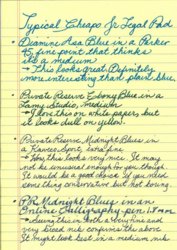 Typical Cheapo Jr Legal Pad
• Diamine Asa Blue in a Parker
45, fine point that thinks
it's a medium
→ This looks Great. Definitely
more interesting than plain blue.
• Private Reserve Ebony Blue in a
Lamy Studio, medium
→ I love this on white paper, but
it looks dull on yellow.
• Private Reserve Midnight Blues in
a Kaweco Sport, fine
→ Now this looks very nice. It may
not be unusual enough for you though.
It would be a good choice if you need
something conservative but not boring.
• PR Midnight Blues in an
Online Calligraphy pen, 1.8 mm
→ Seems this is both a very fine and
very broad nib confirms the above
It might look best in a medium nib